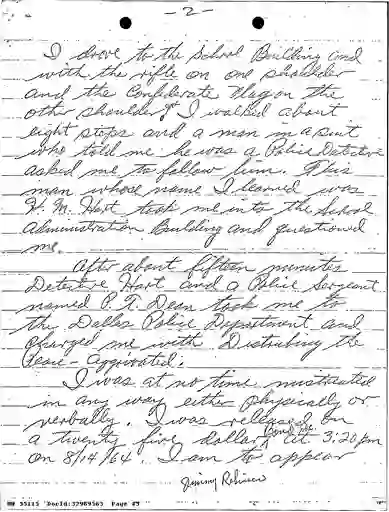 - 2 -
I drove to the School Building and
with the rifle on one shoulder
and the Confederate flag on the
other shoulder & I walked about
eight steps and a man in a suit
who told me he was a Police Detective
asked me to follow him. This
man whose name I learned was
H. M. Hart took me into the School
Administration Building and questioned
me.
After about fifteen minutes
Detective Hart and a Police Sergeant
named P. T. Dean took me to
the Dallas Police Department and
charged me with Distrubing the
Peace - Aggrivated.
I was at no time mistreated
in any way either physically or
verbally. I was released on
a twenty five dollar Bond at 3:20 pm
on 8/14/64. I am to appear
Jimmy Robinson
HW 55115 DocId:32989565 Page 45